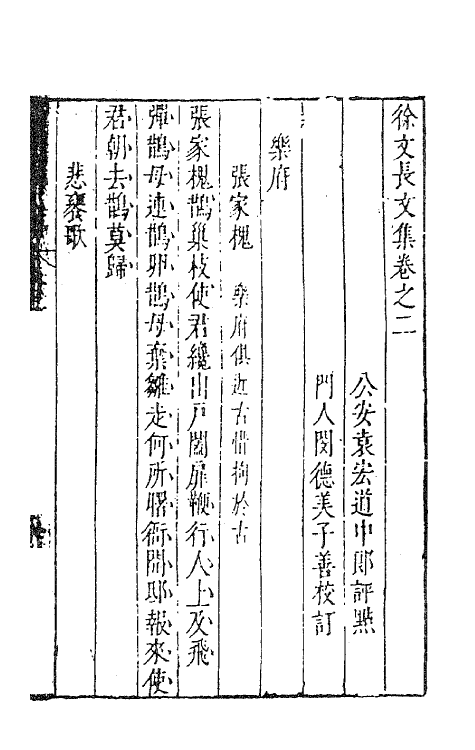 徐文長文集卷之二
公安袁宏道中郎評點
門人閔德美子善校訂
樂府
張家槐 樂府俱近古惜拘於古
張家槐鵲巢枝使君纔出戶闔扉鞭行人上及飛
彈鵲母連鵲卵鵲母棄雛走何所曙衙開邸報來使
君朝去鵲莫歸
悲饔歌